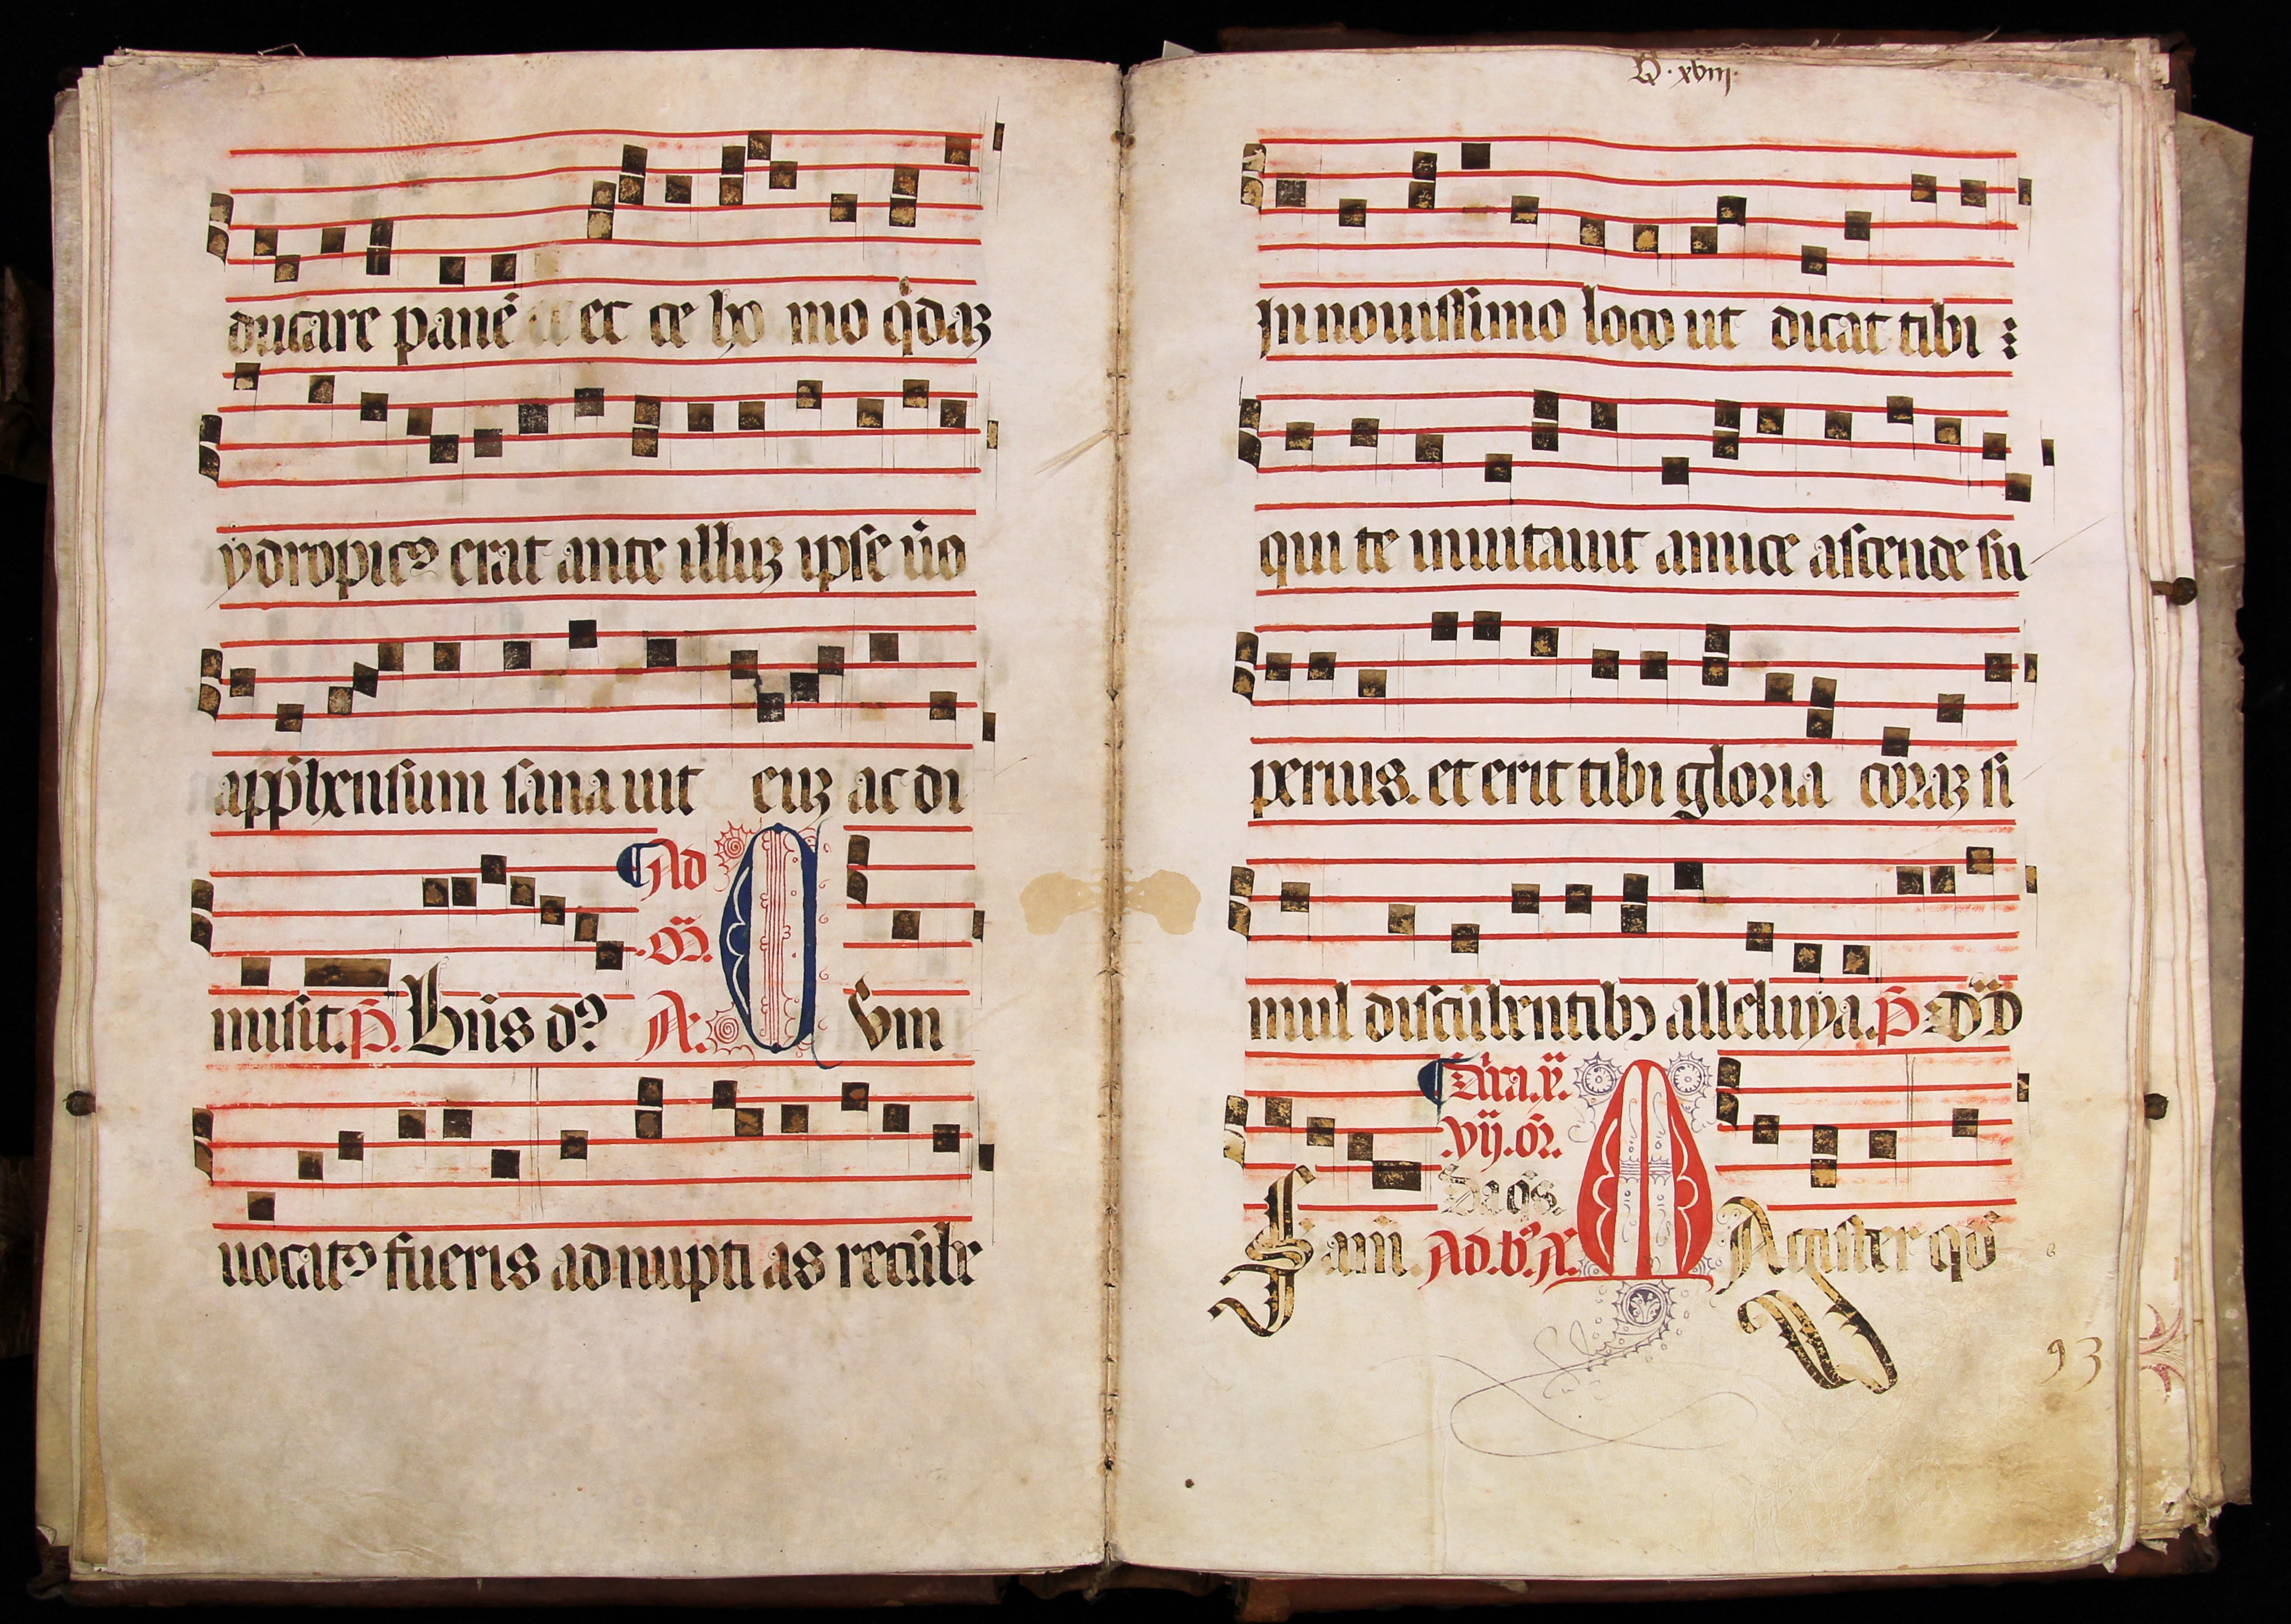 ducare panē et ce ho mo q̇daʒ
ydropicꝰ erat ante illuʒ ipse ūo
appͥhensum sanauit euʒ ac di
Ad
.oͫ.
misit. p̄. Bn̄s dꝰ A. C Vm
uocatꝰ fueris ad nupti as recūbe
D. xviij.
In nouissimo loco ut dicat tibi :
qui te inuitauit amice ascende su
perius. et erit tibi gloria coraʒ si
mul discūbentibꝰ alleluya. p̄. Dn̄s
.vij. or̄.
Da q̄s.
fam. Ad. b. A. M Agister qd̄
93